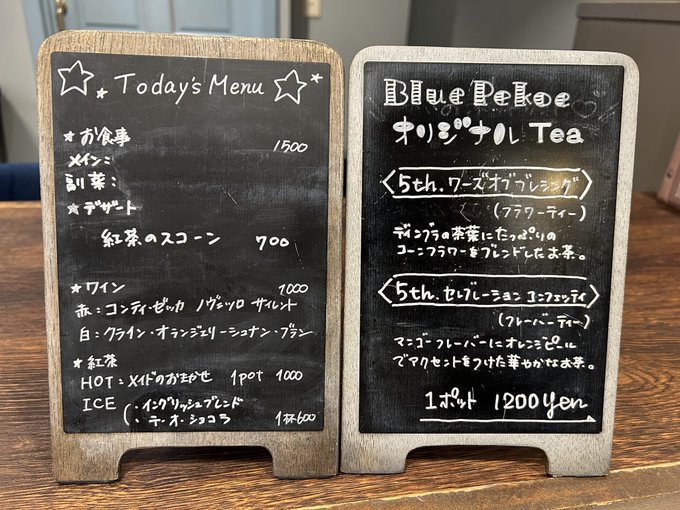 Today's Menu
★お食事 1500
メイン:
副菜:
★デザート
紅茶のスコーン 700
★ワイン 1000
赤:コンティ・ゼッカ ノヴェッロ サイレント
白:クライン・オランジェリーシュナン・ブラン
★紅茶
HOT:メイドのおまかせ 1pot 1000
ICE (・イングリッシュブレンド
・テ・オ・ショコラ 1杯600
Blue Pekoe
オリジナル Tea
5th.ワーズオブブレシング
(フラワーティー)
ディンブラの茶葉にたっぷりの
コーンフラワーをブレンドしたお茶。
5th.セレブレーション コンフェッティ
(フレーバーティー)
マンゴーフレーバーにオレンジピール
でアクセントをつけた華やかなお茶。
1ポット 1200yen